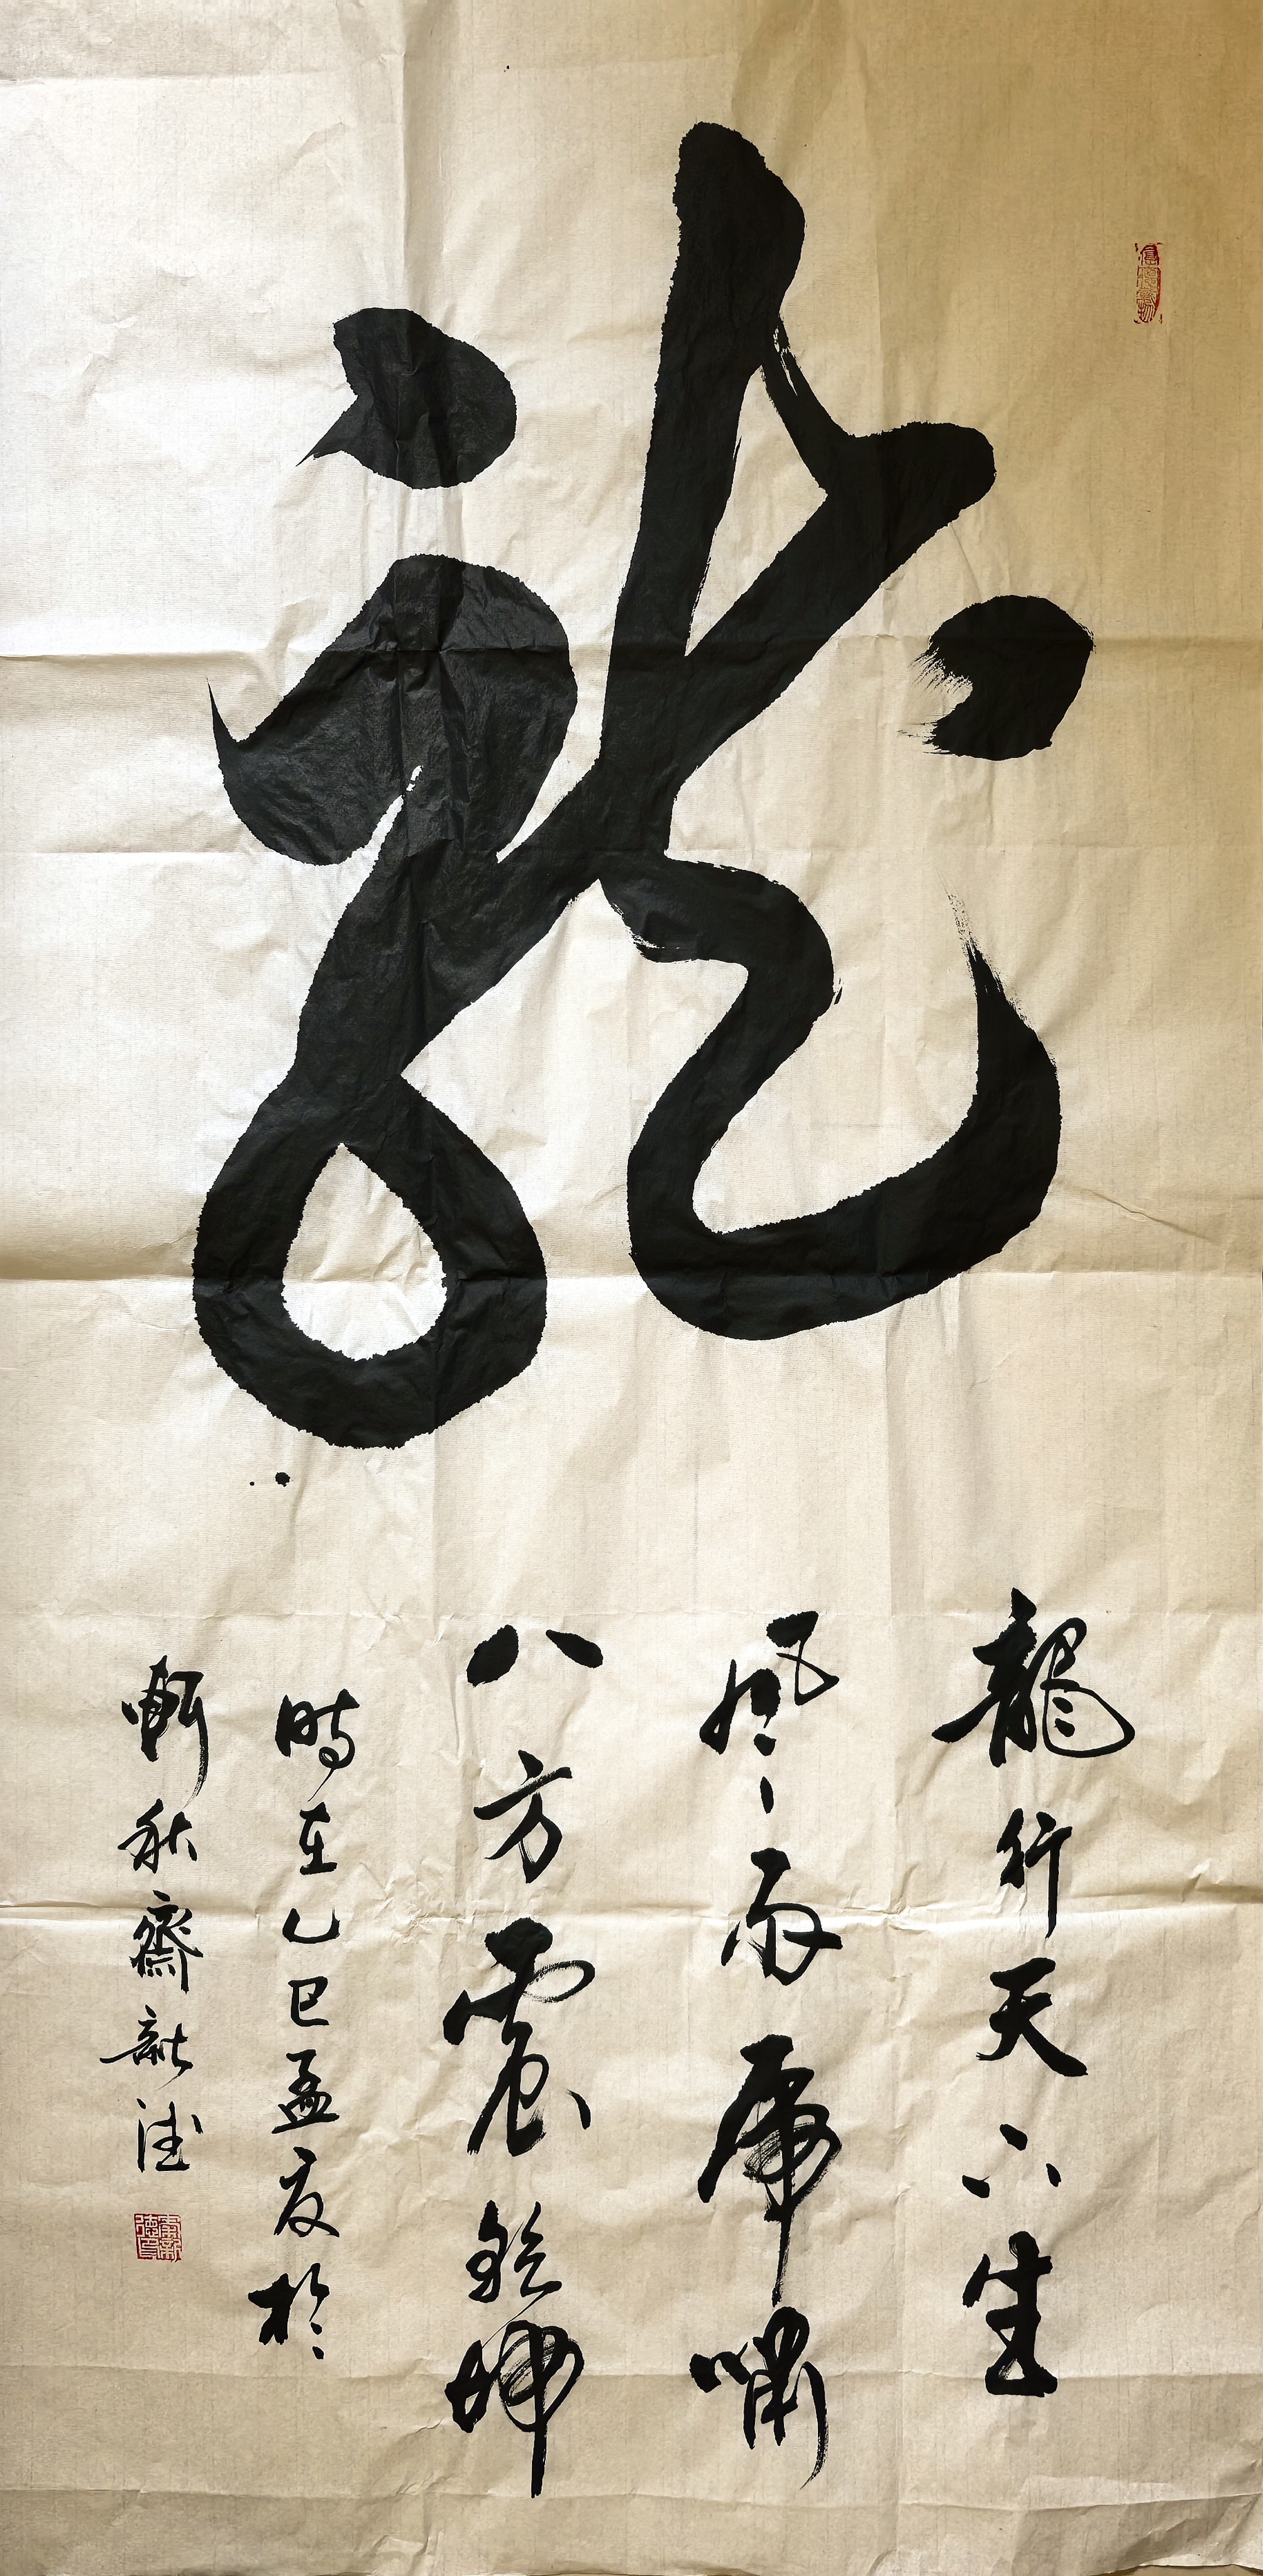 龍
龍行天下生
風雨虎嘯
八方震乾坤
時在乙巳孟夏於
軒秋齋新德